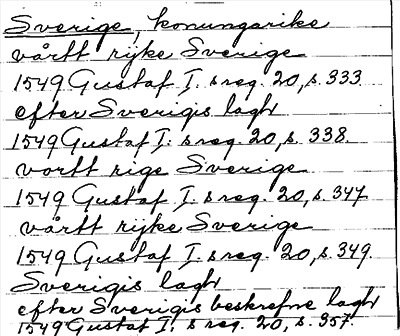 Sverige, konungarike
vårtt rijke Sverige
1549 Gustaf I. s reg. 20, s. 333.
efter Sverigis lagh
1549 Gustaf I. s reg. 20, s. 338.
vortt rige Sverige
1549 Gustaf I. s reg. 20, s. 347
vårtt rijke Sverige
1549 Gustaf I. s reg. 20, s. 349.
Sverigis lagh
efter Sverigis beskrefne lagh
1549 Gustaf I. s reg. 20, s. 357.